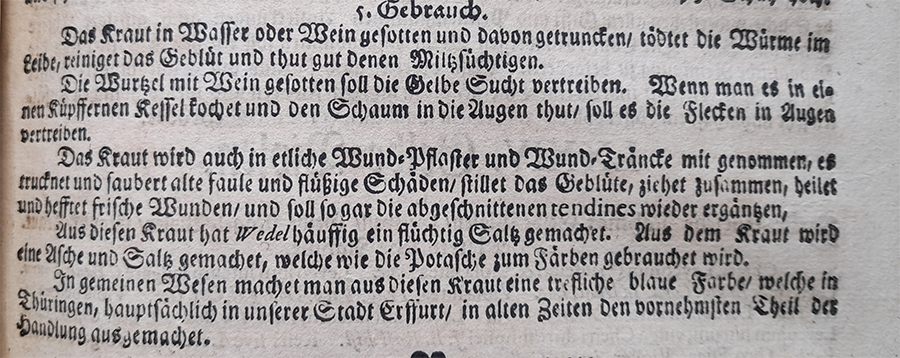 5. Gebrauch.
Das Kraut in Wasser oder Wein gesotten und davon getruncken/ tödtet die Würme im
Leibe, reiniget das Geblüt und thut gut denen Miltzsüchtigen.
Die Wurtzel mit Wein gesotten soll die Gelbe Sucht vertreiben. Wenn man es in ei-
nen Küpffernen Kessel kochet und den Schaum in die Augen thut/ soll es die Flecken in Augen
vertreiben.
Das Kraut wird auch in etliche Wund-Pflaster und Wund-Träncke mit genommen, es
trucknet und saubert alte faule und flüßige Schäden/ stillet das Geblüte, ziehet zusammen, heilet
und hefftet frische Wunden/ und soll so gar die abgeschnittenen tendines wieder ergäntzen,
Aus diesen Kraut hat Wedel häuffig ein flüchtig Saltz gemachet. Aus dem Kraut wird
eine Asche und Saltz gemachet, welche wie die Potasche zum Färben gebrauchet wird.
In gemeinen Wesen machet man aus diesen Kraut eine trefliche blaue Farbe/ welche in
Thüringen, hauptsächlich in unserer Stadt Erffurt/ in alten Zeiten den vornehmsten Theil der
Handlung ausgemachet.